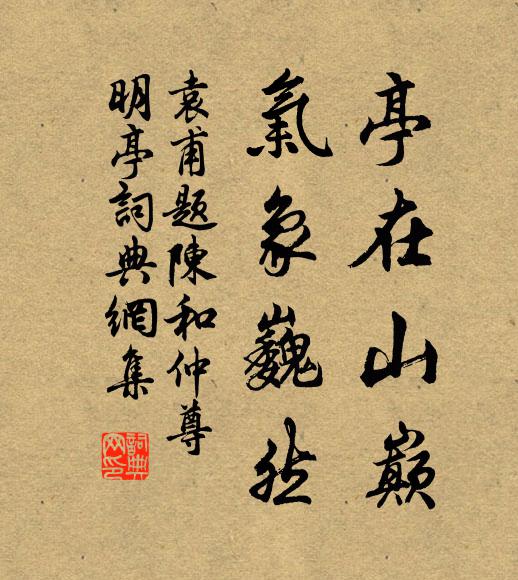 亭在山巔
氣象巍然
袁甫題陳和仲尊
明亭詞典網集
詞典
网印